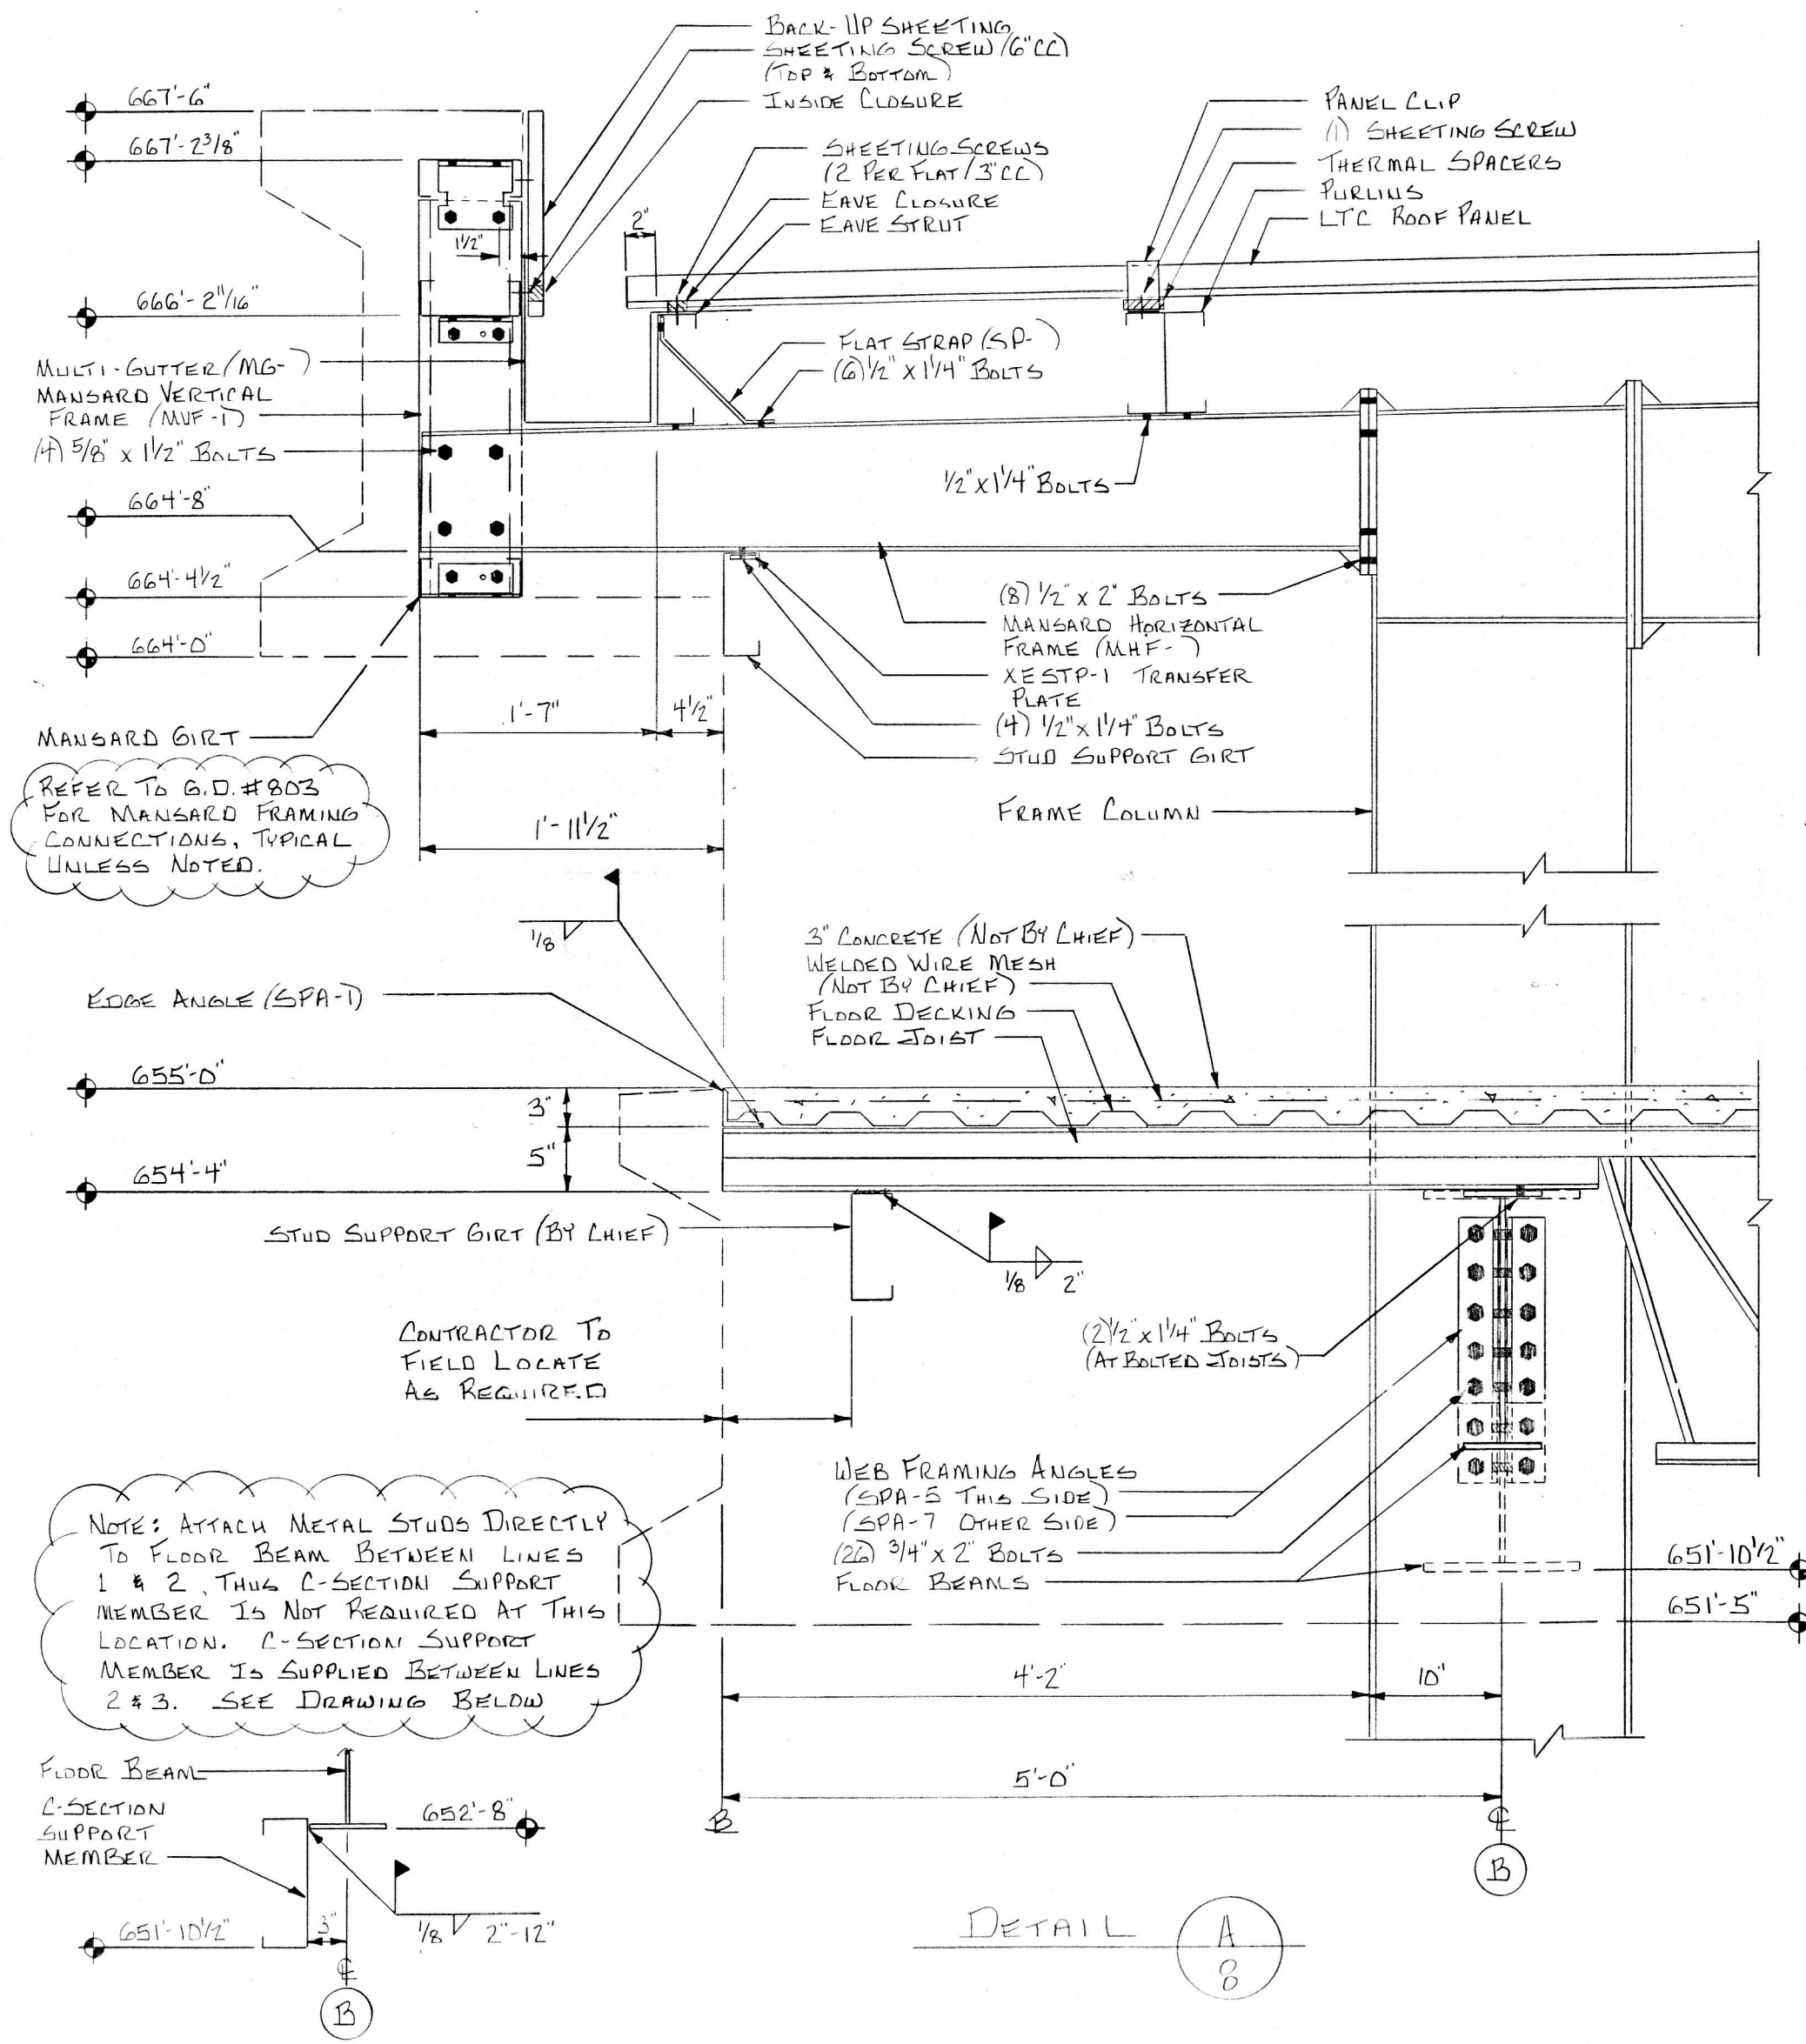 BACK-UP SHEETING
SHEETING SCREW (6"CC)
(TOP & BOTTOM)
INSIDE CLOSURE
SHEETING SCREWS
(2 PER FLAT/3"CC)
EAVE CLOSURE
EAVE STRUT
PANEL CLIP
(1) SHEETING SCREW
THERMAL SPACERS
PURLINS
LTC ROOF PANEL
667'-6"
667'-2 3/8"
2"
1 1/2"
666'-2 11/16"
FLAT STRAP (SP- )
(6) 1/2" X 1 1/4" BOLTS
MULTI-GUTTER (MG- )
MANSARD VERTICAL
FRAME (MVF-1)
(4) 5/8" X 1 1/2" BOLTS
1/2" X 1 1/4" BOLTS
664'-8"
664'-4 1/2"
664'-0"
(8) 1/2" X 2" BOLTS
MANSARD HORIZONTAL
FRAME (MHF- )
XESTP-1 TRANSFER
PLATE
(4) 1/2" X 1 1/4" BOLTS
STUD SUPPORT GIRT
1'-7"
4 1/2"
MANSARD GIRT
REFER TO G.D. #803
FOR MANSARD FRAMING
CONNECTIONS, TYPICAL
UNLESS NOTED.
1'-11 1/2"
FRAME COLUMN
1/8
3" CONCRETE (NOT BY CHIEF)
WELDED WIRE MESH
(NOT BY CHIEF)
FLOOR DECKING
FLOOR JOIST
EDGE ANGLE (SPA-1)
655'-0"
3"
5"
654'-4"
STUD SUPPORT GIRT (BY CHIEF)
1/8 2"
CONTRACTOR TO
FIELD LOCATE
AS REQUIRED
(2) 1/2" X 1 1/4" BOLTS
(AT BOLTED JOISTS)
WEB FRAMING ANGLES
(SPA-5 THIS SIDE)
(SPA-7 OTHER SIDE)
(26) 3/4" X 2" BOLTS
FLOOR BEAMS
651'-10 1/2"
651'-5"
NOTE: ATTACH METAL STUDS DIRECTLY
TO FLOOR BEAM BETWEEN LINES
1 & 2, THUS C-SECTION SUPPORT
MEMBER IS NOT REQUIRED AT THIS
LOCATION. C-SECTION SUPPORT
MEMBER IS SUPPLIED BETWEEN LINES
2 & 3. SEE DRAWING BELOW
4'-2"
10"
5'-0"
B
℄
B
FLOOR BEAM
C-SECTION
SUPPORT
MEMBER
652'-8"
651'-10 1/2"
3"
1/8 2"-12"
℄
B
DETAIL A
8